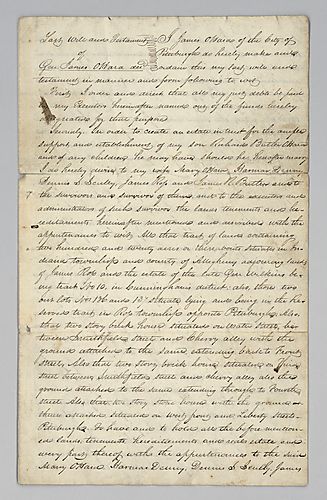 Last Will and Testament
of
Gen James OHara decd
I James OHara of the City of
Pittsburgh do hereby make and
ordain this my last will and
testament in manner and form following to wit,
First, I order and direct that all my just debts be paid
my Executors hereinafter named out of the funds hereby
designated for that purpose
Secondly, In order to create an estate in trust for the
support and establishment of my son Richard Butler OHara
and of any children he may have should he hereafter marry
I do hereby devise to my wife Mary OHara, Harmar Denny,
Dennis S. Scully, James Ross and James R. Butler and to
the survivors and survivor of them, and to the executors and
administrators of such survivor the lands tenements and he
reditaments hereinafter mentioned and described with the
appurtenances to wit, All that tract of land containing
two hundred and twenty acres or thereabouts situate in
township and county of Allegheny adjoining lands
of James Ross and the estate of the late Gen Wilkins
my tract No 10, in Cunninghams district also those two
out lots No. 196 and situate lying and being in the re
served tract in Ross township opposite Pittsburgh Also
that two story brick house situated on Water Street, be
tween Smithfield street and Cherry alley with the
ground attached to the same extending back to Front
Street, Also that two story brick house situated on
street between Smithfield street and cherry alley also the
ground attached to the same extending through to Fourth
street Also that two story stone house with the ground
thereto attached situated on west penn and Liberty streets
Pittsburgh To have and to hold all the before mention
ed lands, tenements hereditaments and real estate and
every part thereof with the appurtenances to the said
Mary OHara Harmar Denny, Dennis S Scully, James